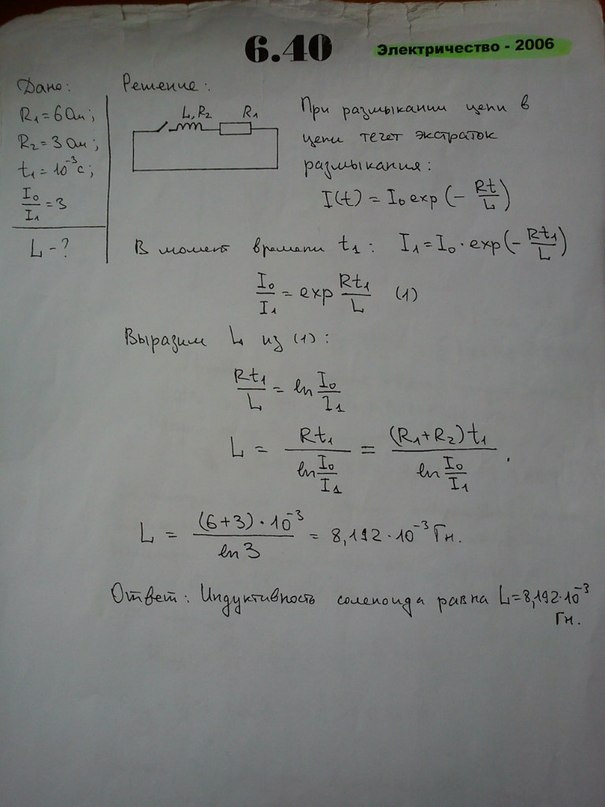 6.40 Электричество - 2006
Дано:
R₁ = 6 Ом;
R₂ = 3 Ом;
t₁ = 10⁻³ с;
I₀/I₁ = 3
L - ?
Решение:
L, R₂ R₁
При размыкании цепи в
цепи течет экстраток
размыкания:
I(t) = I₀ exp(- Rt/L)
В момент времени t₁: I₁ = I₀ · exp(- Rt₁/L)
I₀/I₁ = exp Rt₁/L (1)
Выразим L из (1):
Rt₁/L = ln I₀/I₁
L = Rt₁/ln I₀/I₁ = (R₁ + R₂) t₁/ln I₀/I₁.
L = (6+3) · 10⁻³/ln 3 = 8,192 · 10⁻³ Гн.
Ответ: Индуктивность соленоида равна L = 8,192 · 10⁻³
Гн.